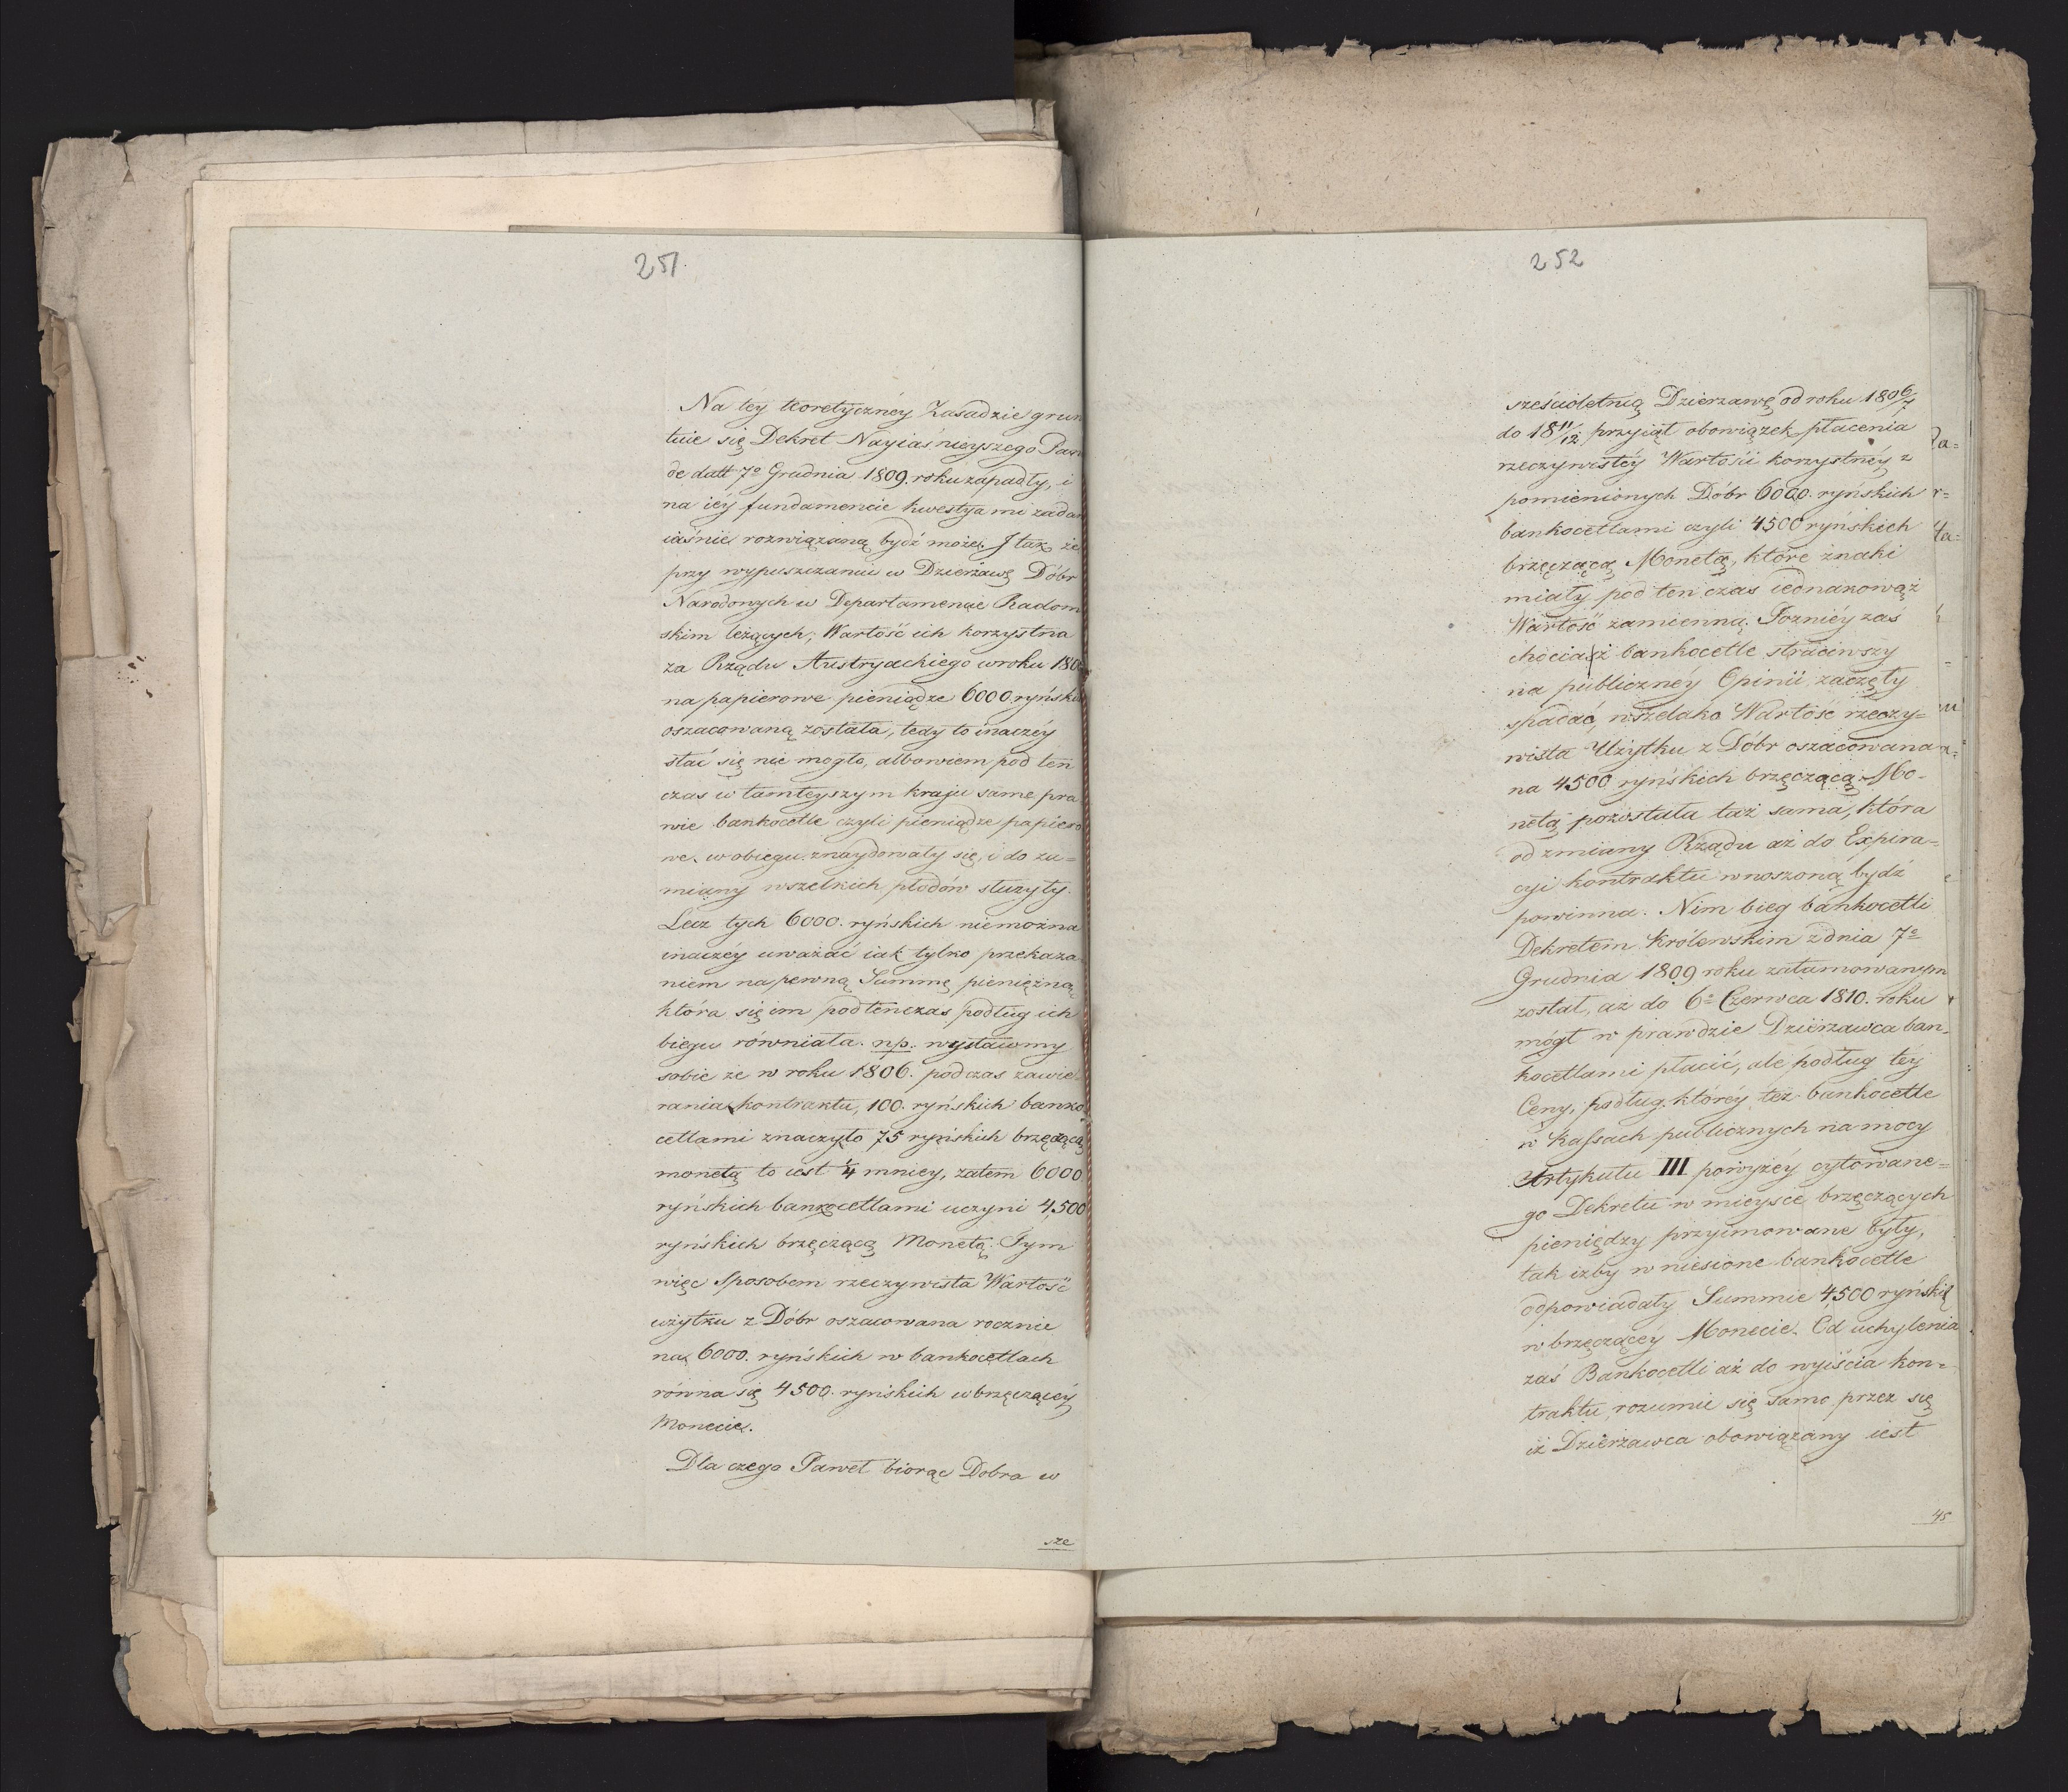 251.
Na téy teoretycznéy Zasadzie grun
tuie się Dekret Nayiaśnieyszego Pan
de datt 7º Grudnia 1809. roku zapadły, i
na iéy fundamencie kwestya mi zadan
iaśnie rozwiązaną bydź może. J tak że
przy wypuszczaniu w Dzierżawę Dóbr
Narodowych w Departamencie Radom
skim leżących; Wartość ich korzystna
za Rządu Austryackiego w roku 180
na papierowe pieniądze 6000. ryńskich
oszacowaną została, tedy to inaczéy
stać się nie mogło, albowiem pod ten
czas w tamteyszym kraju same pra
wie bankocetle czyli pieniądze papiero
we w obiegu znaydowały się, i do za=
miany wszelkich płodów służyły.
Lecz tych 6000. ryńskich niemożna
inaczéy uważać iak tylko przekaza
niem na pewną Summę pieniężną,
która się im podtenczas podług ich
biegu równiała. np. wystawmy
sobie że w roku 1806. podczas zawie
rania kontraktu, 100. ryńskich banko
cetlami znaczyło 75 ryńskich brzęczącą
monetą to iest 1/4 mniey, zatem 6000
ryńskich bankocetlami uczyni 4,500
ryńskich brzęczącą Monetą. Tym
więc Sposobem rzeczywista Wartość
użytku z Dóbr oszacowana rocznie
na 6000. ryńskich w bankocetlach
równa się 4500. ryńskich w brzęczącéy
Monecie.
Dla czego Paweł biorąc Dobra w
sze
252
sześcioletnią Dzierzawę od roku 180 6/7
do 18 11/12 przyiął obowiązek płacenia
rzeczywistéy Wartości korzystnéy z
pomienionych Dóbr 6000. ryńskich
bankocetlami czyli 4500 ryńskich
brzęczącą Monetą, które znaki
miały pod ten czas iednakowąż
Wartość zamienną. Pozniéy zaś
chociaż bankocetle straciwszy
na publiczney Opinii zaczęły
spadać, wszelako Wartość rzeczy=
wista Użytku z Dóbr oszacowana
na 4500 ryńskich brzęczącą Mo-
netą pozostała taż sama, która
od zmiany Rządu aż do Expira=
cyi kontraktu wnoszoną bydź
powinna. Nim bieg bankocetli
Dekretem Królewskim z dnia 7º
Grudnia 1809 roku zatamowanym
został, aż do 6º Czerwca 1810. roku
mógł w prawdzie Dzierżawca ban=
kocetlami płacić, ale podług téy
Ceny, podług któréy też bankocetle
w Kassach publicznych na mocy
Artykułu III powyżéy cytowane=
go Dekretu w mieysce brzęczących
pieniędzy przyimowane były,
tak izby wniesione bankocetle
odpowiadały Summie 4500 ryńskich
w brzęczącéy Monecie. Od uchylenia
zaś Bankocetli aż do wyiścia kon=
traktu, rozumie się samo przez się
iż Dzierżawca obowiązany iest
45